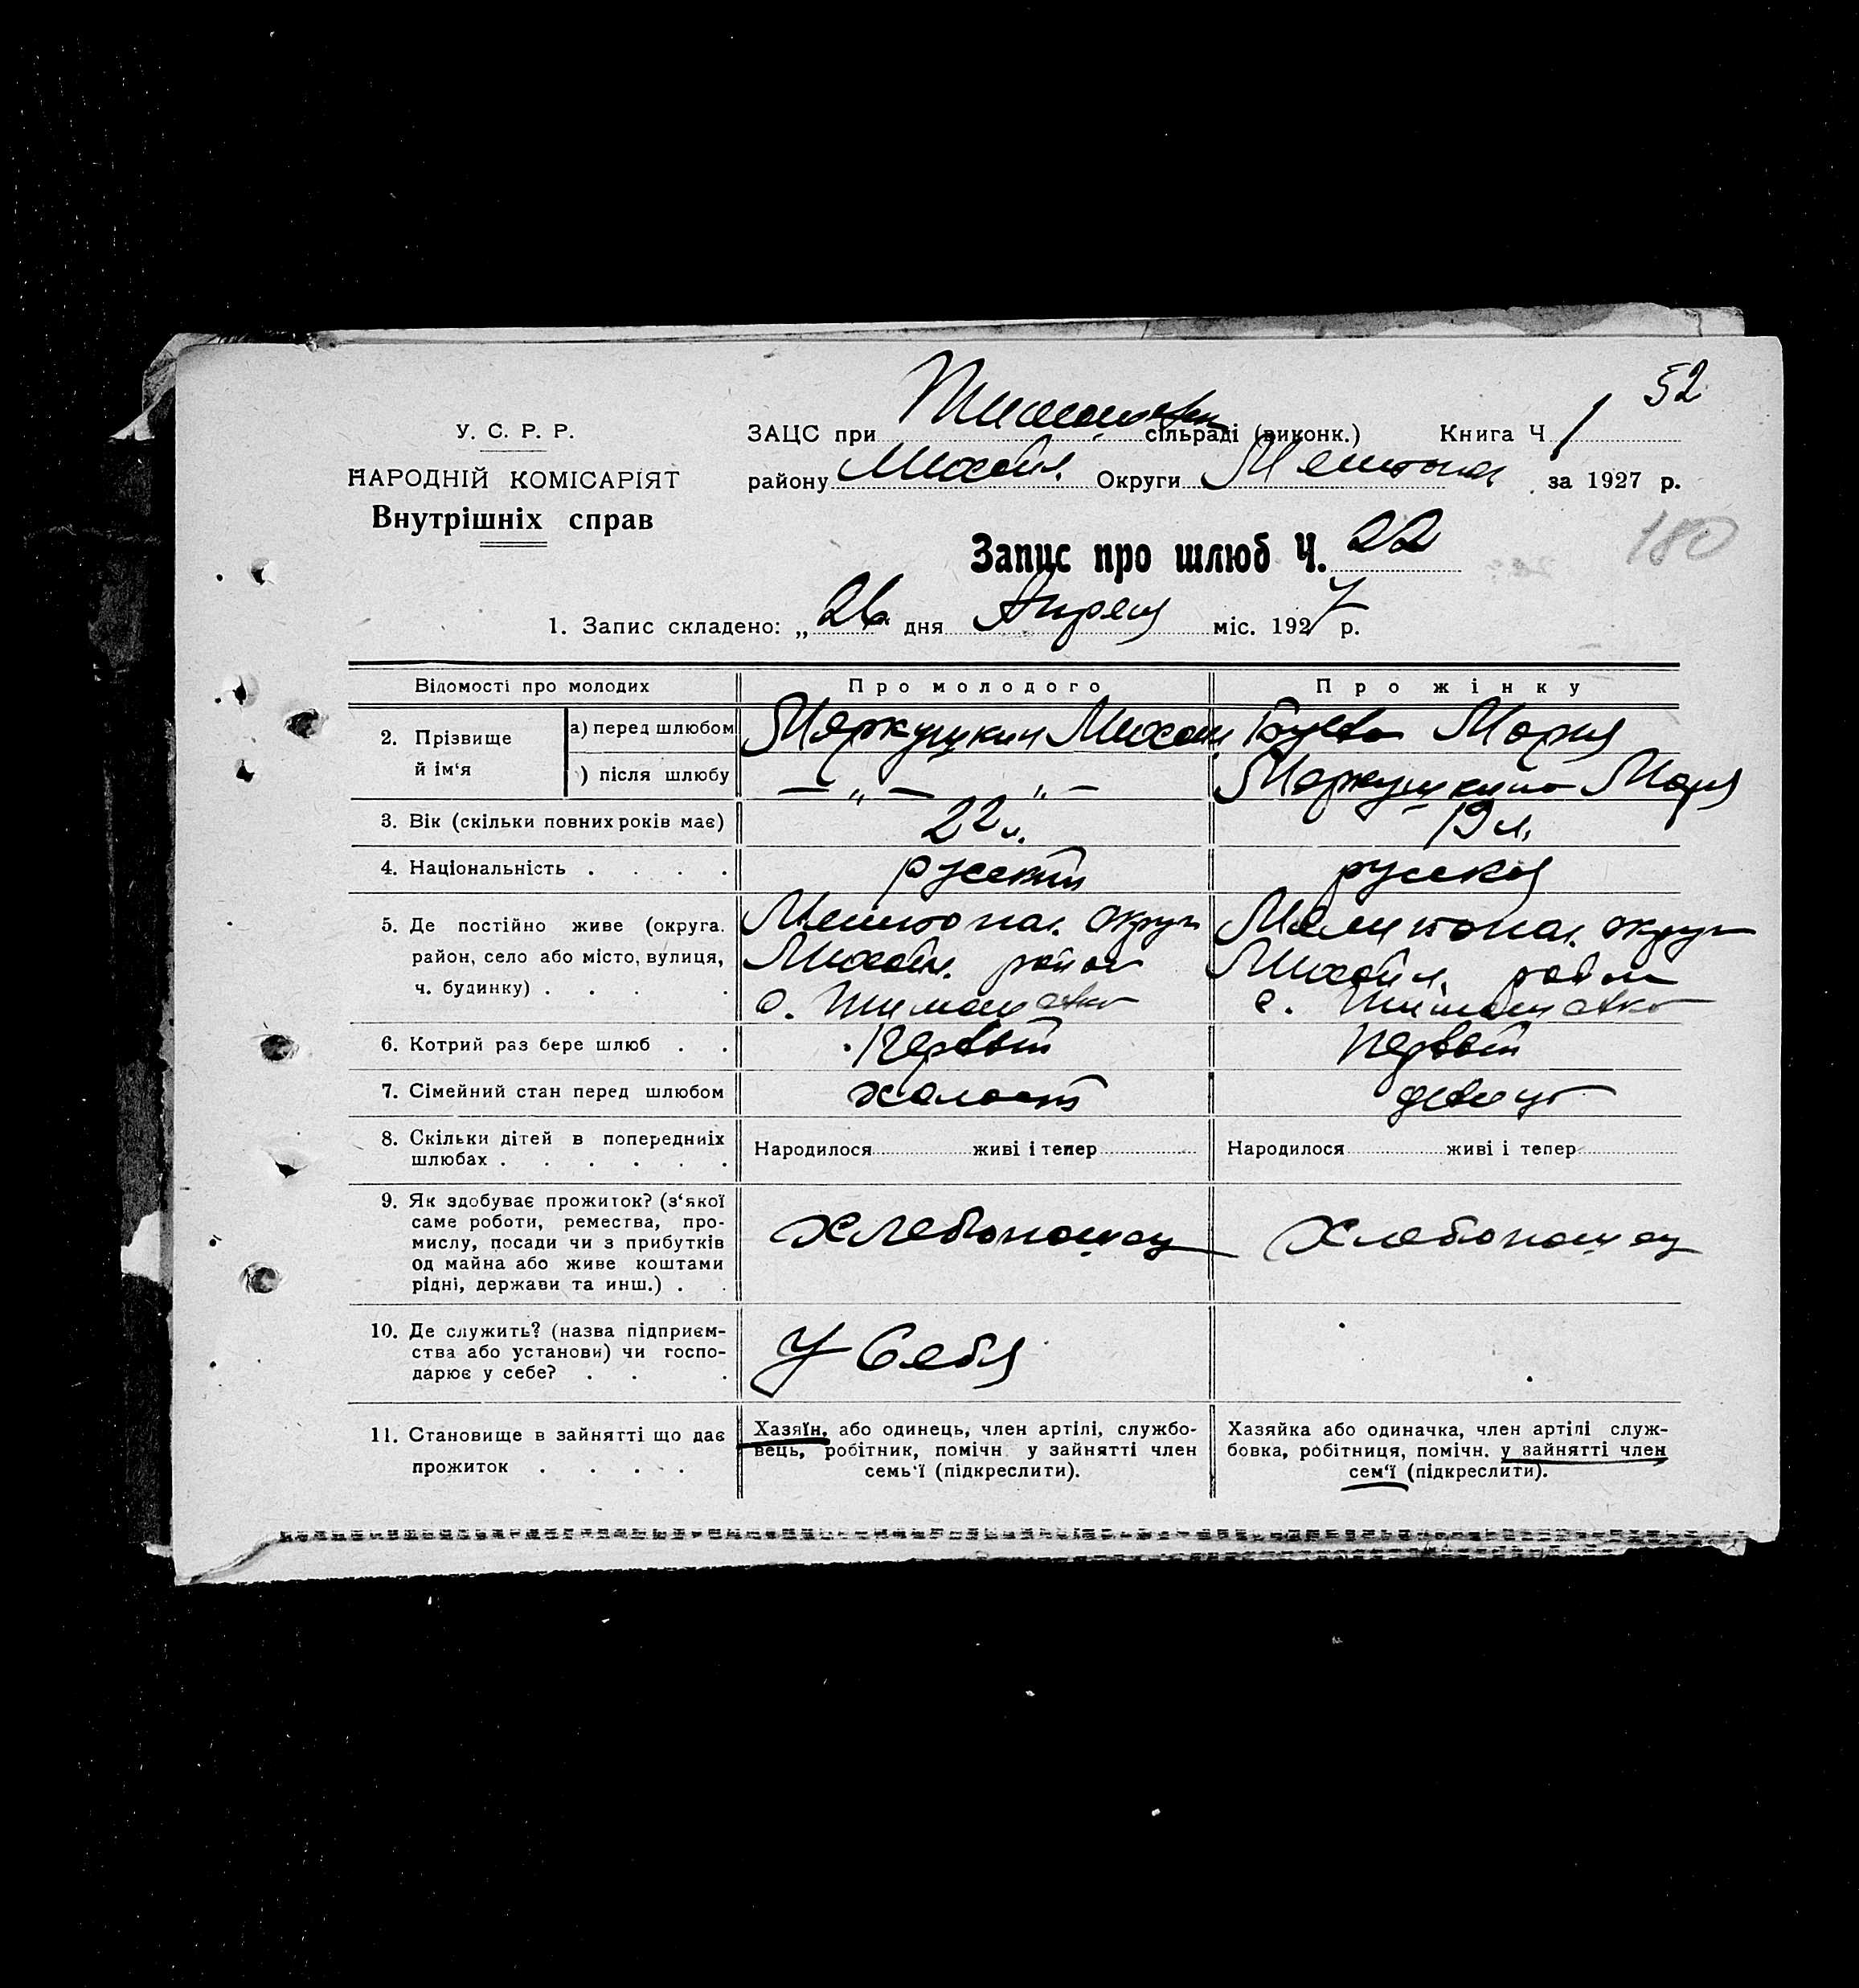 52
У. С. Р. Р.
НАРОДНІЙ КОМІСАРІЯТ
Внутрішніх справ
ЗАЦС при Тимошевск сільраді (виконк.) Книга Ч 1
району Михайл. Округи Мелитопол за 1927 р.
180
Запис про шлюб Ч. 22
1. Запис складено: „26 дня Апреля міс. 1927 р.
Відомості про молодих Про молодого Про жінку
2. Прізвище й ім‘я
а) перед шлюбом Мяркушкин Михаил Буева Мария
) після шлюбу — „ — „ — Маркушкина Мария
3. Вік (скільки повних років має) 22 л. 19 л.
4. Національність . . . . русский русская
5. Де постійно живе (округа. Мелитопол. округ Мелитопол. округ
район, село або місто, вулиця, Михайл. район Михайл. район
ч. будинку) . . . . с. Тимошевка с. Тимошевка
6. Котрий раз бере шлюб . . Первый Первый
7. Сімейний стан перед шлюбом холост девица
8. Скільки дітей в попередниіх Народилося живі і тепер Народилося живі і тепер
шлюбах . . . . . .
9. Як здобуває прожиток? (з‘якої
саме роботи, ремества, про-
мислу, посади чи з прибутків Хлебопашец Хлебопашец
од майна або живе коштами
рідні, держави та инш.) . .
10. Де служить? (назва підприєм-
ства або установи) чи госпо- У Себя
дарює у себе? . . .
11. Становище в зайнятті що дає
прожиток . . . .
Хазяїн, або одинець, член артілі, службо-
вець, робітник, помічн у зайнятті член
семь‘ї (підкреслити).
Хазяйка або одиначка, член артілі служ-
бовка, робітниця, помічн. у зайнятті член
сем‘ї (підкреслити).